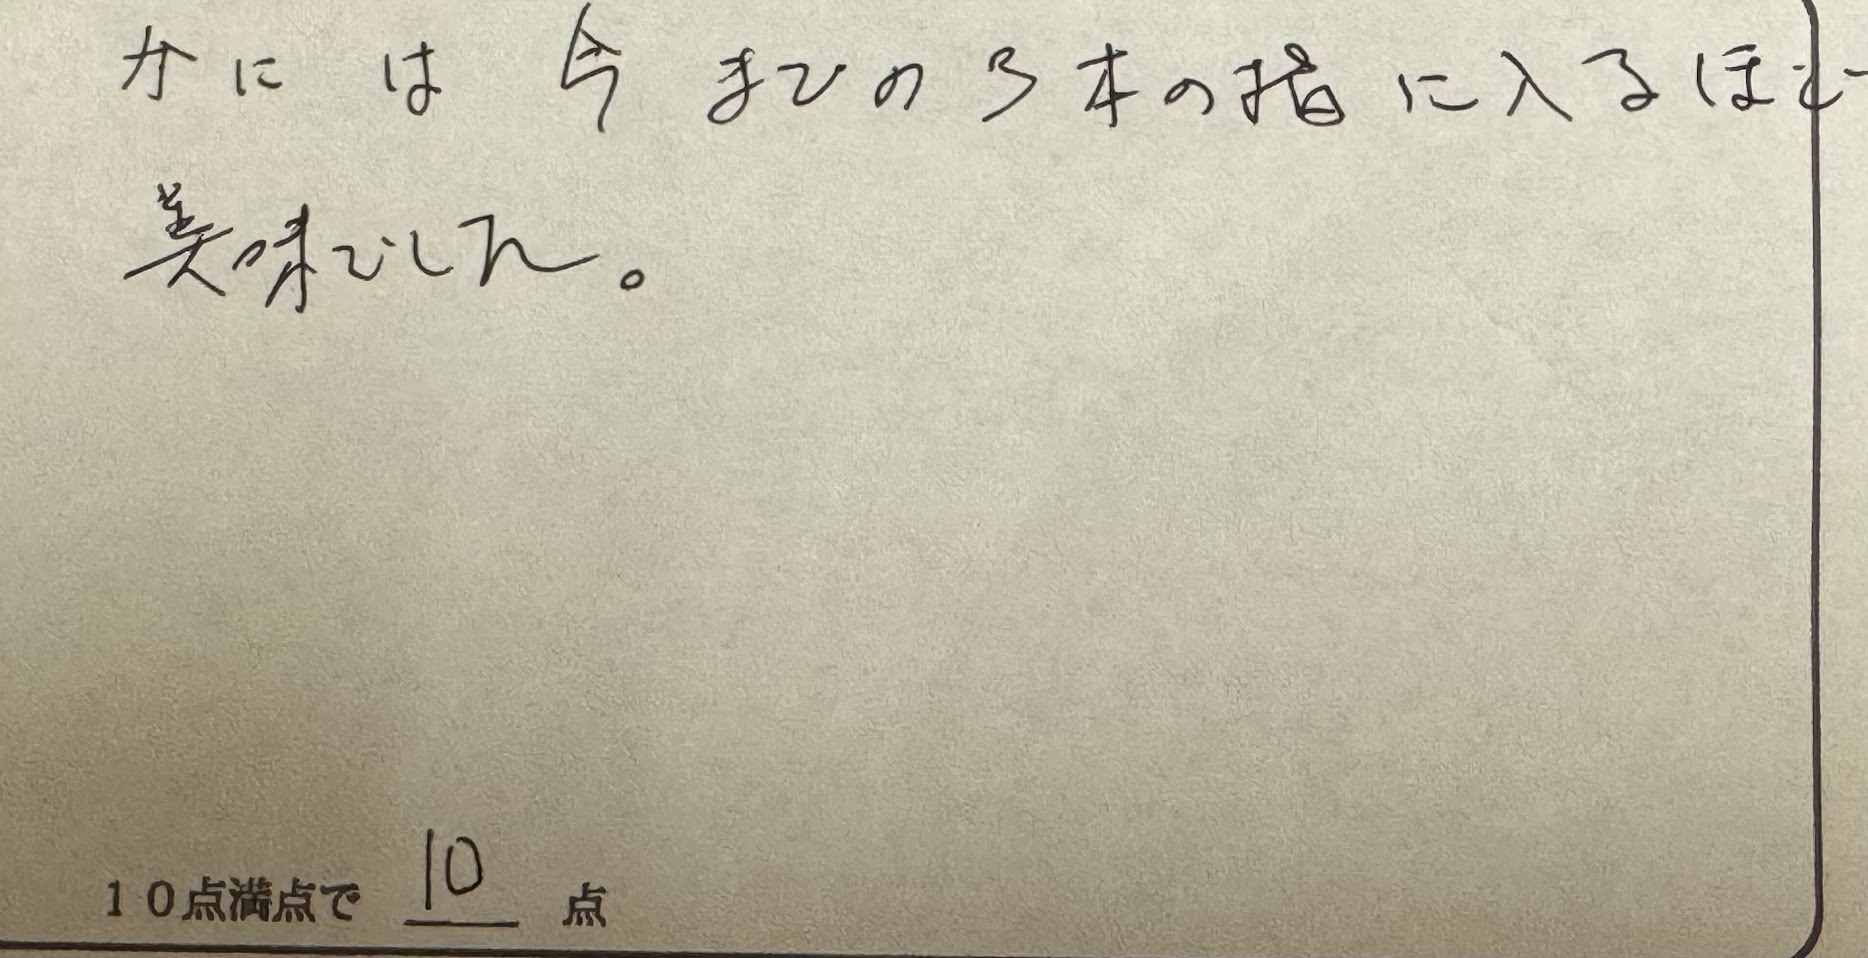 かには 今までの3本の指に入るほど
美味でした。
10点満点で 10 点